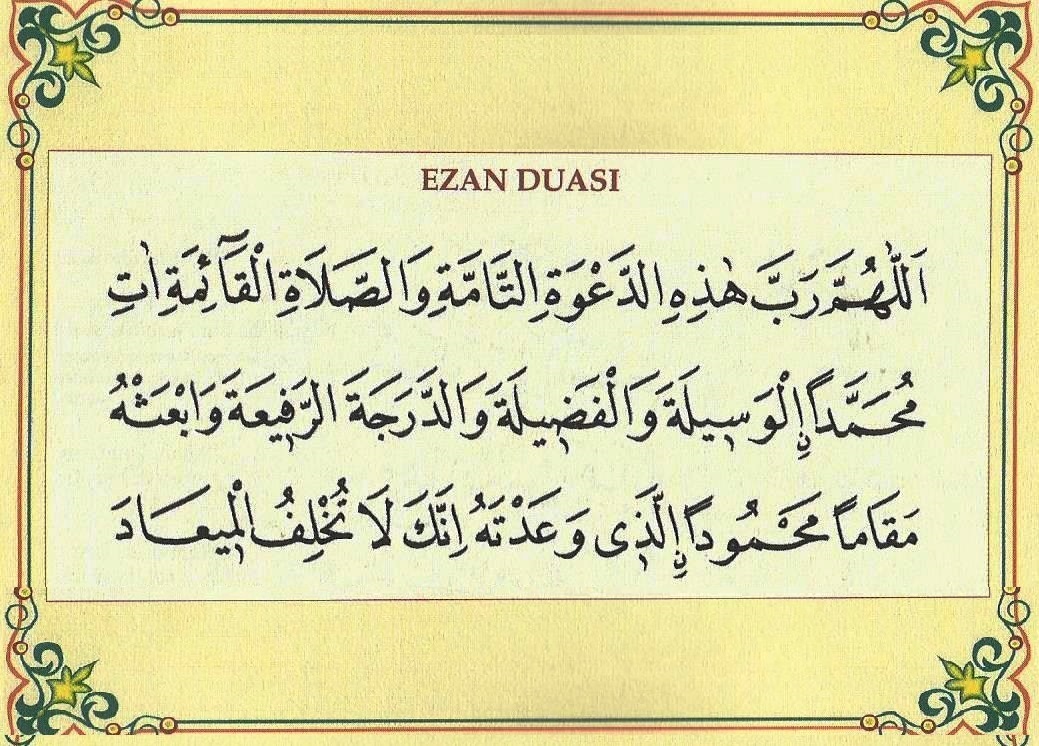 EZAN DUASI
اَللّٰهُمَّ رَبَّ هٰذِهِ الدَّعْوَةِ التَّامَّةِ وَالصَّلَاةِ الْقَٓائِمَةِ اٰتِ
مُحَمَّداًنِ الْوَسِيلَةَ وَالْفَضِيلَةَ وَالدَّرَجَةَ الرَّفِيعَةَ وَابْعَثْهُ
مَقَاماً مَحْمُوداًنِ الَّذِى وَعَدْتَهُ اِنَّكَ لَا تُخْلِفُ الْمِيعَادَ